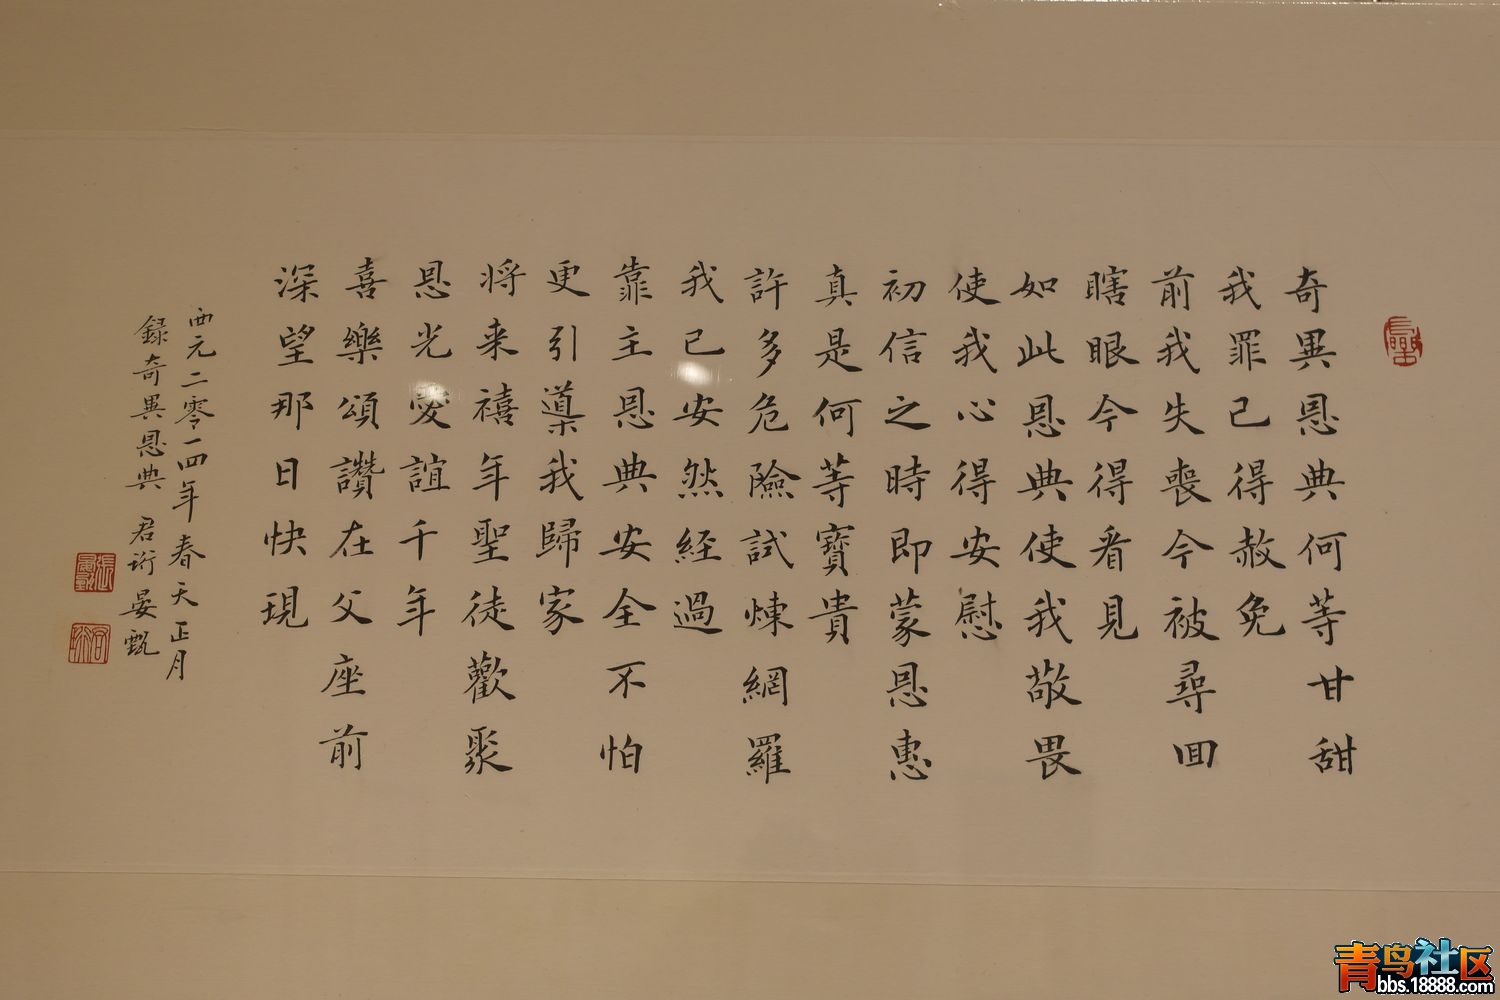 奇異恩典何等甘甜
我罪已得赦免
前我失喪今被尋回
瞎眼今得看見
如此恩典使我敬畏
使我心得安慰
初信之時即蒙恩惠
真是何等寶貴
許多危險試煉網羅
我已安然経過
靠主恩典安全不怕
更引導我歸家
将来禧年聖徒歡聚
恩光愛誼千年
喜樂頌讚在父座前
深望那日快現
西元二零一四年春天正月
録奇異恩典 君衍晏甄
青鸟社区
bbs.18888.com